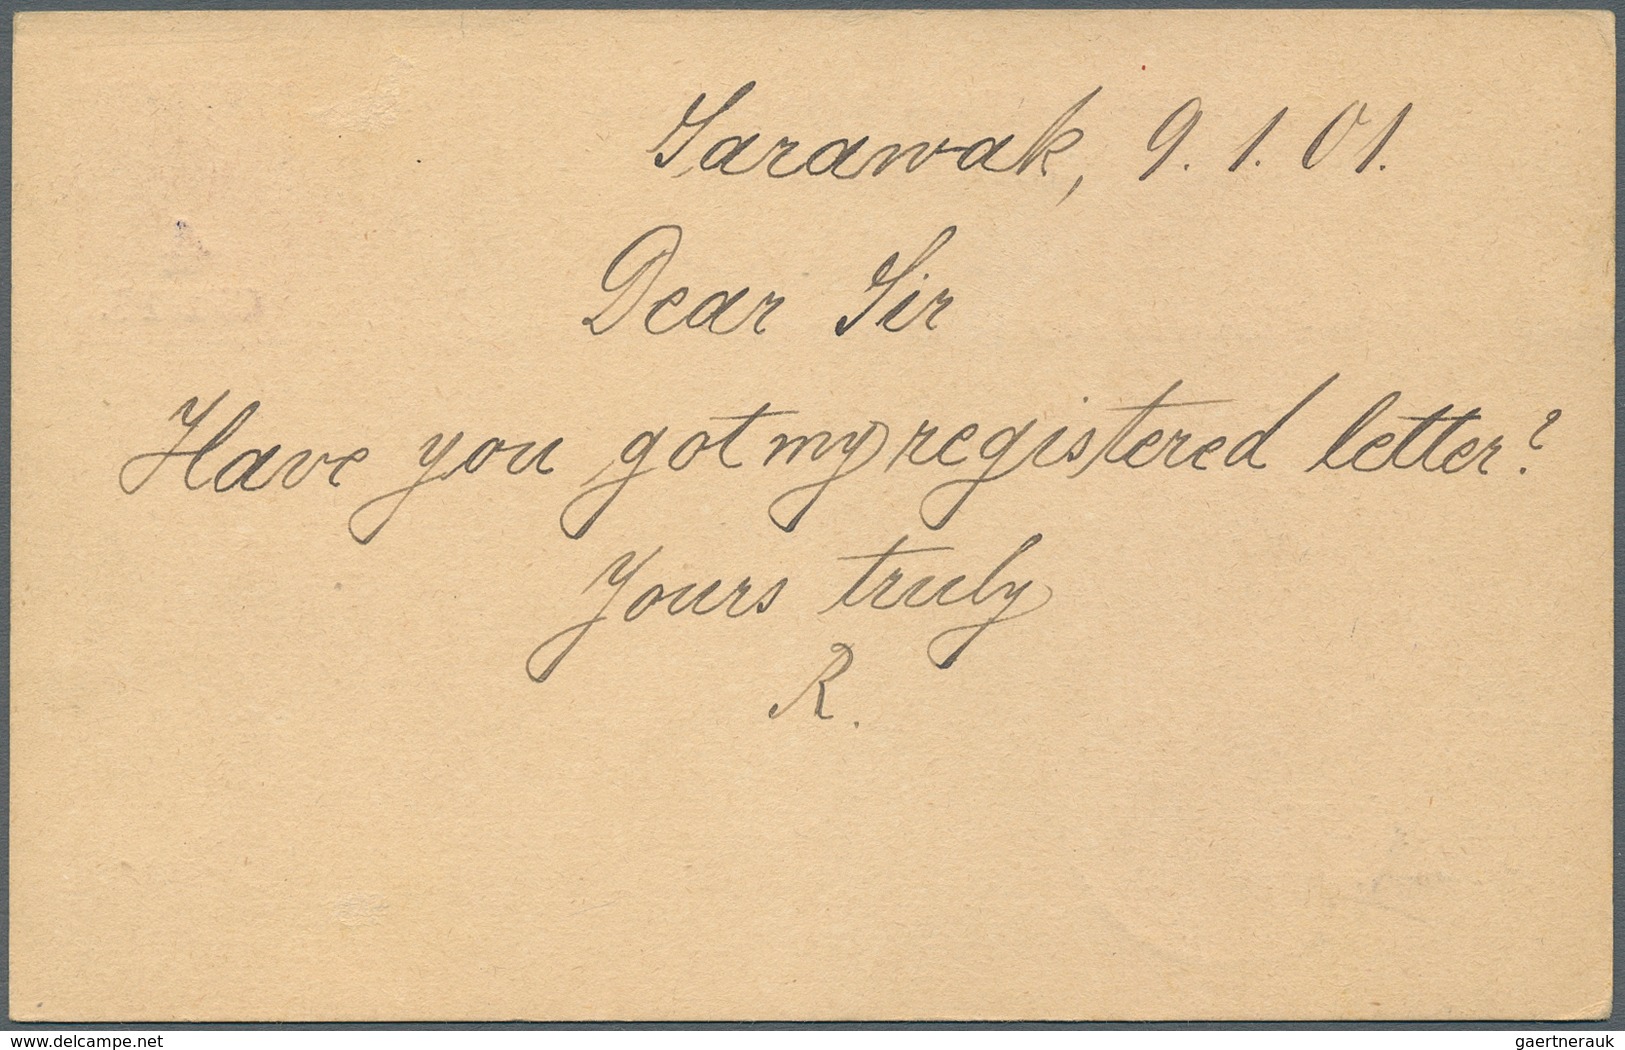 Sarawak, 9.1.01.
Dear Sir
Have you got my registered letter?
Yours truly
R.
www.delcampe.net
gaertnerauk